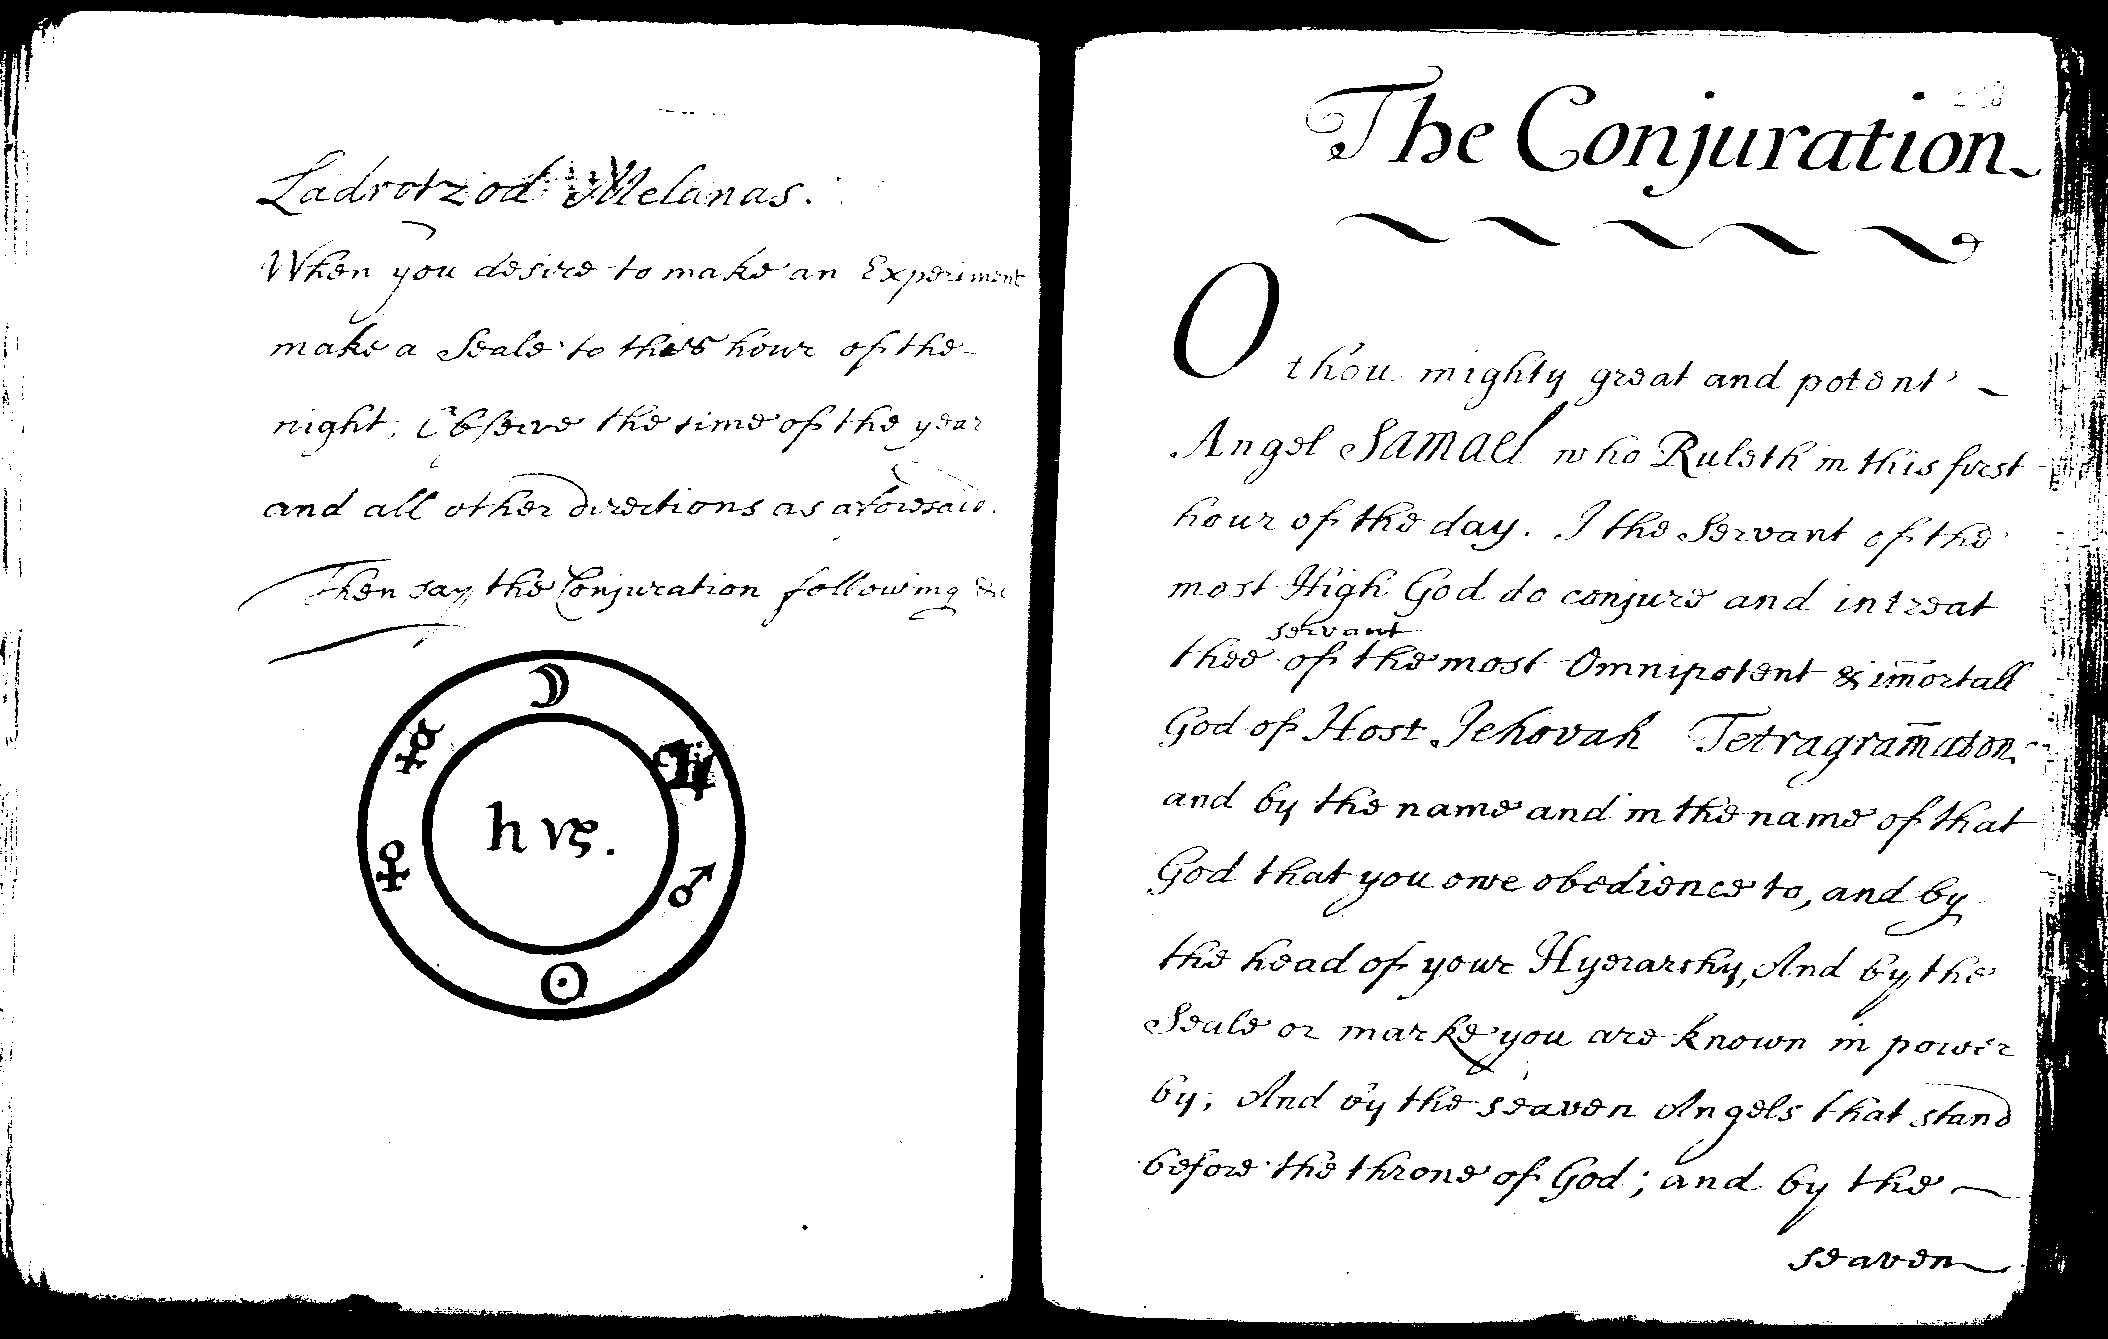 Ladrotzod Melanas.
When you desire to make an Experiment
make a Seale to this hour of the
night, Observe the time of the year
and all other directions as aforesaid.
Then say the Conjuration following &c
☽
☿ ♃
♄ ♑.
♀ ♂
☉
The Conjuration
O thou mighty great and potent
Angel Samael who Ruleth in this first
hour of the day. I the Servant of the
most High God do conjure and intreat
servant
thee of the most Omnipotent & im̄ortall
God of Host Jehovah Tetragram̄aton
and by the name and in the name of that
God that you owe obedience to, and by
the head of your Hyerarchy, And by the
Seale or marke you are known in power
by, And by the seaven Angels that stand
before the throne of God; and by the
seaven